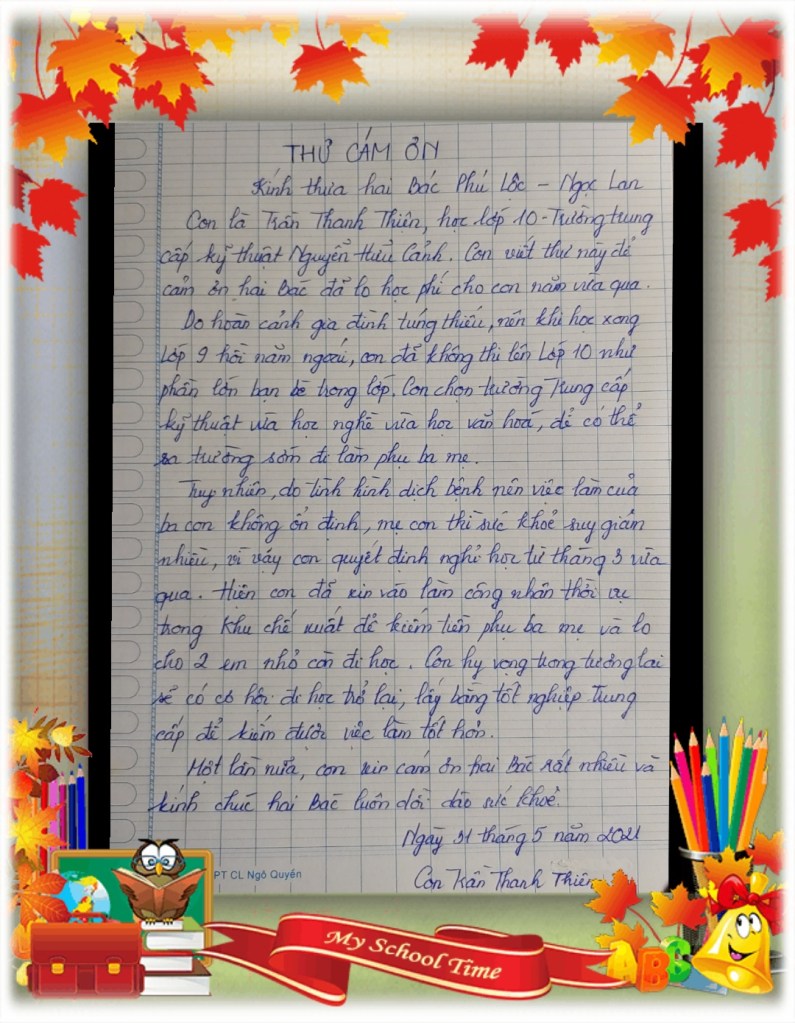 THƯ CÁM ƠN
Kính thưa hai Bác Phú Lộc - Ngọc Lan
Con là Trần Thanh Thiên, học lớp 10 - Trường trung
cấp kỹ thuật Nguyễn Hữu Cảnh. Con viết thư này để
cảm ơn hai Bác đã lo học phí cho con năm vừa qua.
Do hoàn cảnh gia đình túng thiếu, nên khi học xong
Lớp 9 hồi năm ngoái, con đã không thi lên Lớp 10 như
phần lớn bạn bè trong lớp. Con chọn trường Trung cấp
kỹ thuật vừa học nghề vừa học văn hoá, để có thể
ra trường sớm đi làm phụ ba mẹ.
Tuy nhiên, do tình hình dịch bệnh nên việc làm của
ba con không ổn định, mẹ con thì sức khoẻ suy giảm
nhiều, vì vậy con quyết định nghỉ học từ tháng 3 vừa
qua. Hiện con đã xin vào làm công nhân thời vụ
trong Khu chế xuất để kiếm tiền phụ ba mẹ và lo
cho 2 em nhỏ còn đi học. Con hy vọng trong tương lai
sẽ có cơ hội đi học trở lại, lấy bằng tốt nghiệp Trung
cấp để kiếm được việc làm tốt hơn.
Một lần nữa, con xin cám ơn hai Bác rất nhiều và
kính chúc hai Bác luôn dồi dào sức khoẻ.
Ngày 31 tháng 5 năm 2021
Con Trần Thanh Thiên
PT CL Ngô Quyền
My School Time
ABC